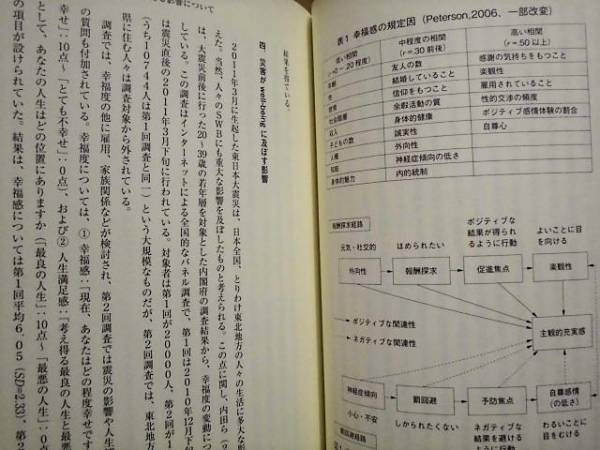 表1 幸福感の規定因 (Peterson,2006、一部改変)
中程度の相関
(r=30 前後)
高い相関
(r=50 以上)
友人の数
結婚していること
信仰をもつこと
余暇活動の質
身体的健康
誠実性
外向性
神経症傾向の低さ
内的統制
感謝の気持ちをもつこと
楽観性
雇用されていること
性的交渉の頻度
ポジティブ感情体験の割合
自尊心
収入
子どもの数
人種
知能
身体的魅力
報酬探求経路
元気・社交的
ほめられたい
ポジティブな
結果が得られ
るように行動
よいことに目
を向ける
外向性
報酬探求
促進焦点
楽観性
ポジティブな関連性
ネガティブな関連性
主観的充実感
神経症傾向
罰回避
予防焦点
自尊感情
(の低さ)
小心・不安
しかられたくない
ネガティブな
結果を避ける
ように行動
わるいことに
目をむける
罰回避経路
結果を得ている。
四、災害が well-being に及ぼす影響
2011年3月に生起した東日本大震災は、日本全国、とりわけ東北地方の人々の生活に多大な影
えた。当然、人々のSWBにも重大な影響を及ぼしたものと考えられる。この点に関し、内田ら(2
は、大震災前後に行った20~39歳の若年層を対象とした内閣府の調査結果から、幸福度の変動につ
している。この調査はインターネットによる全国的なパネル調査で、第1回は2010年12月下旬
は震災直後の2011年3月下旬に行われている。対象者は第1回が20000人、第2回が1
(うち10744人は第1回調査と同一)という大規模なものだが、第2回調査では、東北地方
県に住む人々は調査対象から外されている。
調査では、幸福度の他に雇用、家族関係などが検討され、第2回調査では震災の影響や人生
の質問も付加されている。幸福度については、①幸福感:「現在、あなたはどの程度幸せです
幸せ」:10点~「とても不幸せ」:0点)、および②人生満足感:「考え得る最良の人生と最悪
として、あなたの人生はどの位置にありますか(「最良の人生」:10点~「最悪の人生」:0点
の項目が設けられていた。結果は、幸福感については第1回平均6.05(SD=2.33)、第2